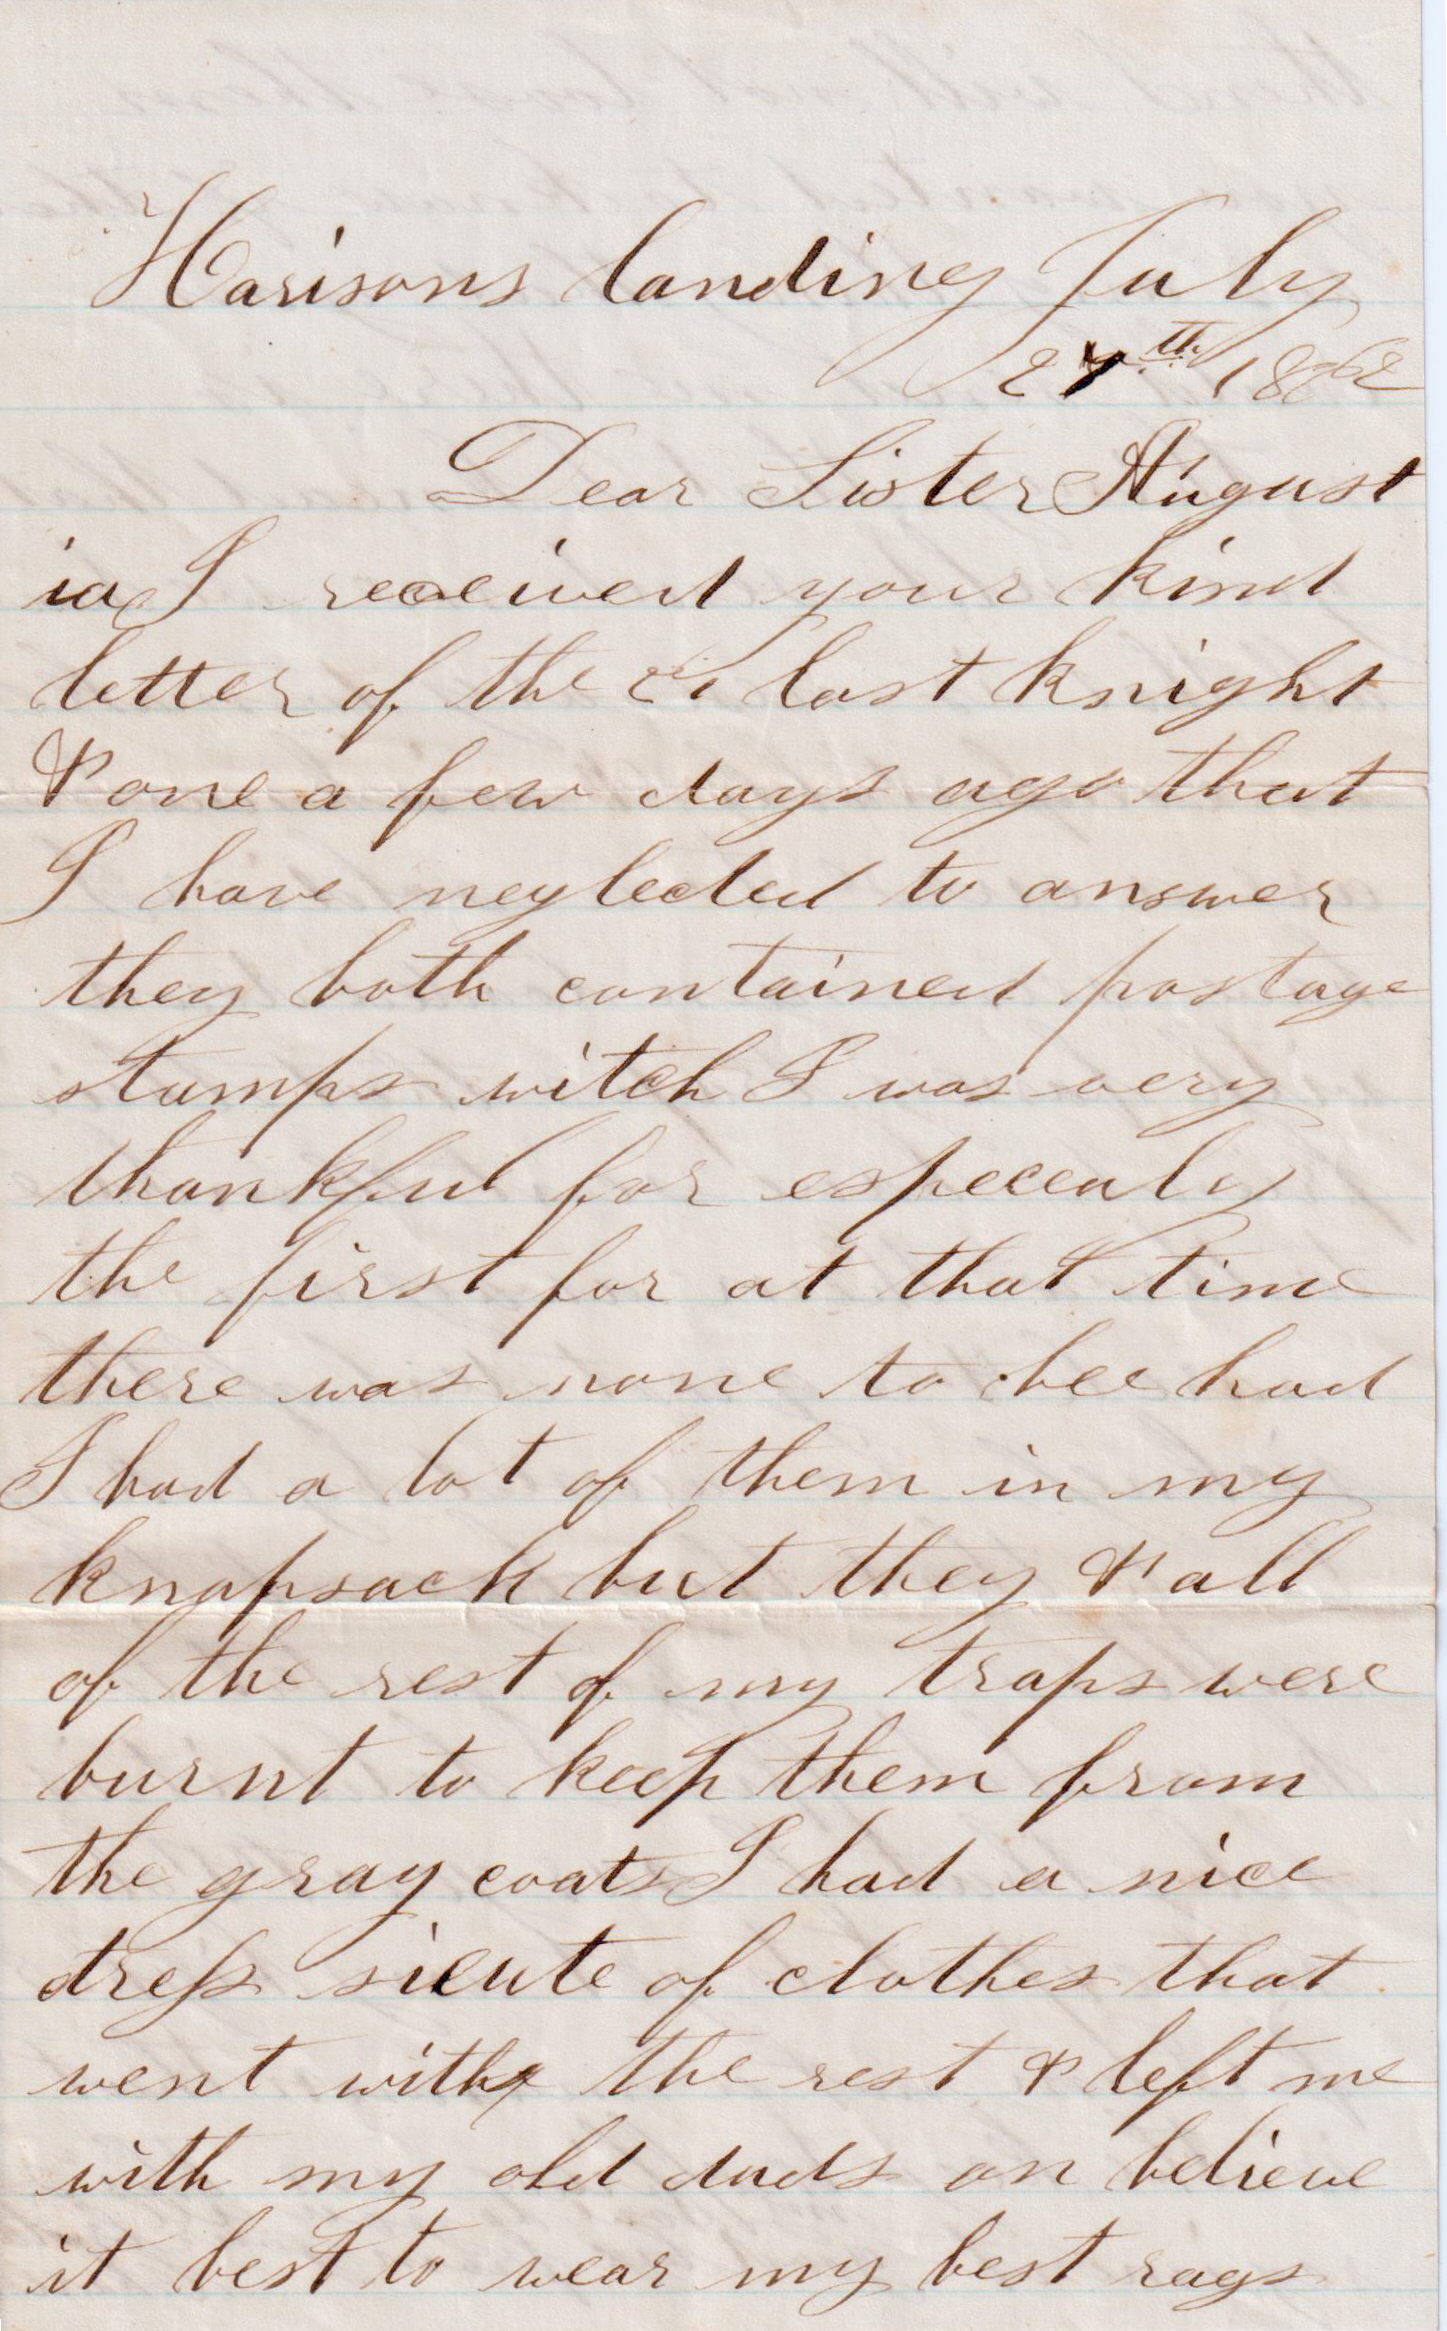 Harisons landing July
27th 1862
Dear Sister August
ia I received your kind
letter of the 21 last knight
& one a few days ago that
I have neglected to answer
they both contained postage
stamps witch I was very
thankful for especealy
the first for at that time
there was none to bee had
I had a lot of them in my
knapsack but they & all
of the rest of my traps were
burnt to keep them from
the gray coats I had a nice
dress siute of clothes that
went with the rest & left me
with my old duds on believe
it best to wear my best rags